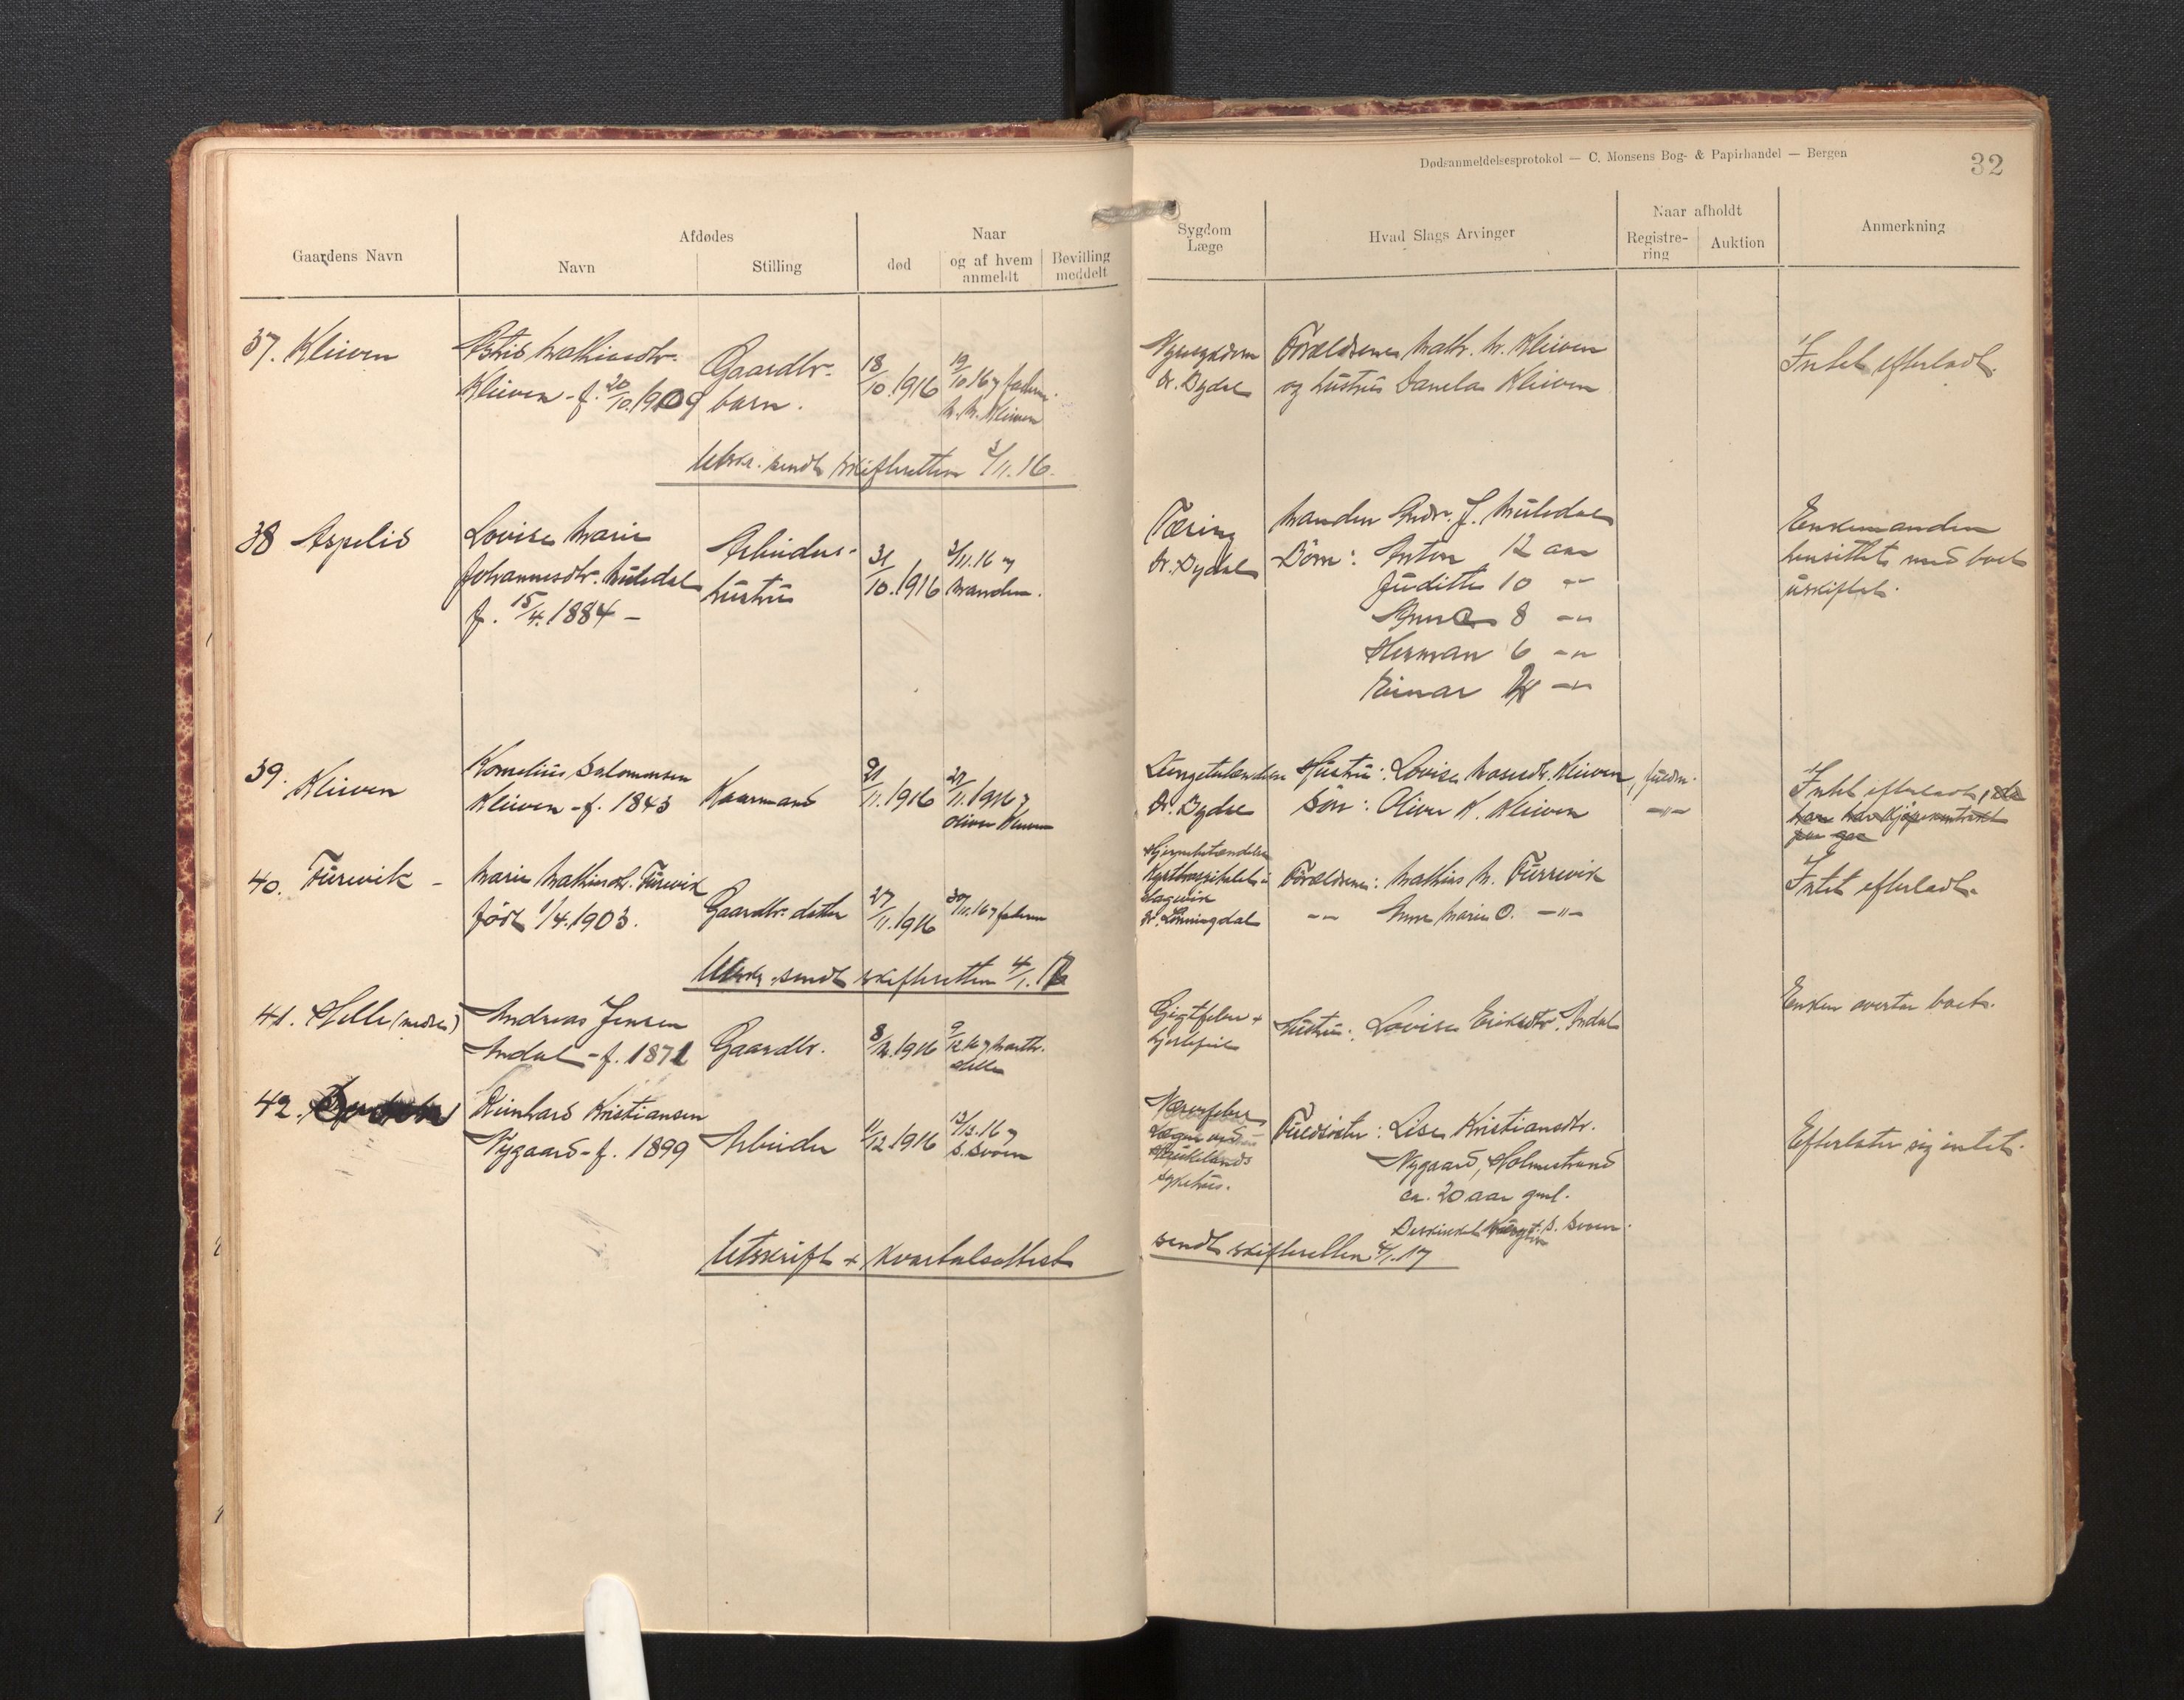 Dødsanmeldelsesprotokol — C. Monsens Bog- & Papirhandel — Bergen
32
Gaardens Navn
Afdødes
Navn
Stilling
Naar
død
og af hvem anmeldt
Bevilling meddelt
Sygdom Læge
Hvad Slags Arvinger
Naar afholdt
Registre-ring
Auktion
Anmerkning
37. Kleiven
Mathiasdtr.
Kleiven - f. 20/10.1909
Gaardbr.
barn.
18/10.1916
19/10 16 av faderen
M. M. Kleiven
Nyresygdom
Dr. Dydal
Forældrene Math. M. Kleiven
og hustru Kleiven
Intet efterladt.
Utskr. sendt skifteretten 3/11.16.
38 Aspelid
Lovise Marie
Johannesdtr. Muledal
f. 15/4.1884 -
Arbeider-
hustru
31/10.1916
3/11.16 av
manden.
Tæring
Dr. Dydal
Manden Andr. J. Muledal
Børn: Anton 12 aar
Judithe 10 -"-
Anna 8 -"-
Herman 6 -"-
Einar -"-
Enkemanden
hensittet med boet
uskiftet.
39. Kleiven
Kornelius Salomonsen
Kleiven - f. 1843
Kaarmand
21/11.1916
27/11.1916 av
Oliver Kleiven
Lungebetændelse
Dr. Dydal
Hustru: Lovise Mosesdtr. Kleiven, fuldm.
Søn: Oliver K. Kleiven -"-
Intet efterladt, da
han har kjøpekontrakt
40. Furevik -
Marie Mathiasdtr. Furevik
født 1/4.1903.
Gaardbr. datter
27/11.1916
30/11.16 av faderen
Hjernebetændelse
Kysthospitalet i
Hagevik
Dr. Lønningdal
Forældrene: Mathias M. Furrevik
-"- Anne Marie O. -"-
Intet efterladt.
Utskr. sendt skifteretten 4/1.17
41. Helle (nedre)
Andreas Jensen
Indal - f. 1871
Gaardbr.
8/12.1916
9/12 16 av Marth.
Helle
Gigtfeber +
hjertefeil
Hustru: Lovise Eriksdtr. Indal
Enken overtar boet.
42.
Reinhard Kristiansen
Nygaard - f. 1899
Arbeider
11/12 1916
13/12.16 av
S. Svoen
Nervefeber
Haukelands
sykehus.
Fuldsøster: Lise Kristiansdtr.
Nygaard, Holmestrand
ca. 20 aar gml.
S. Svoen.
Efterlater sig intet.
Utskrift + kvartalsattest
sendt skifteretten 4/1.17